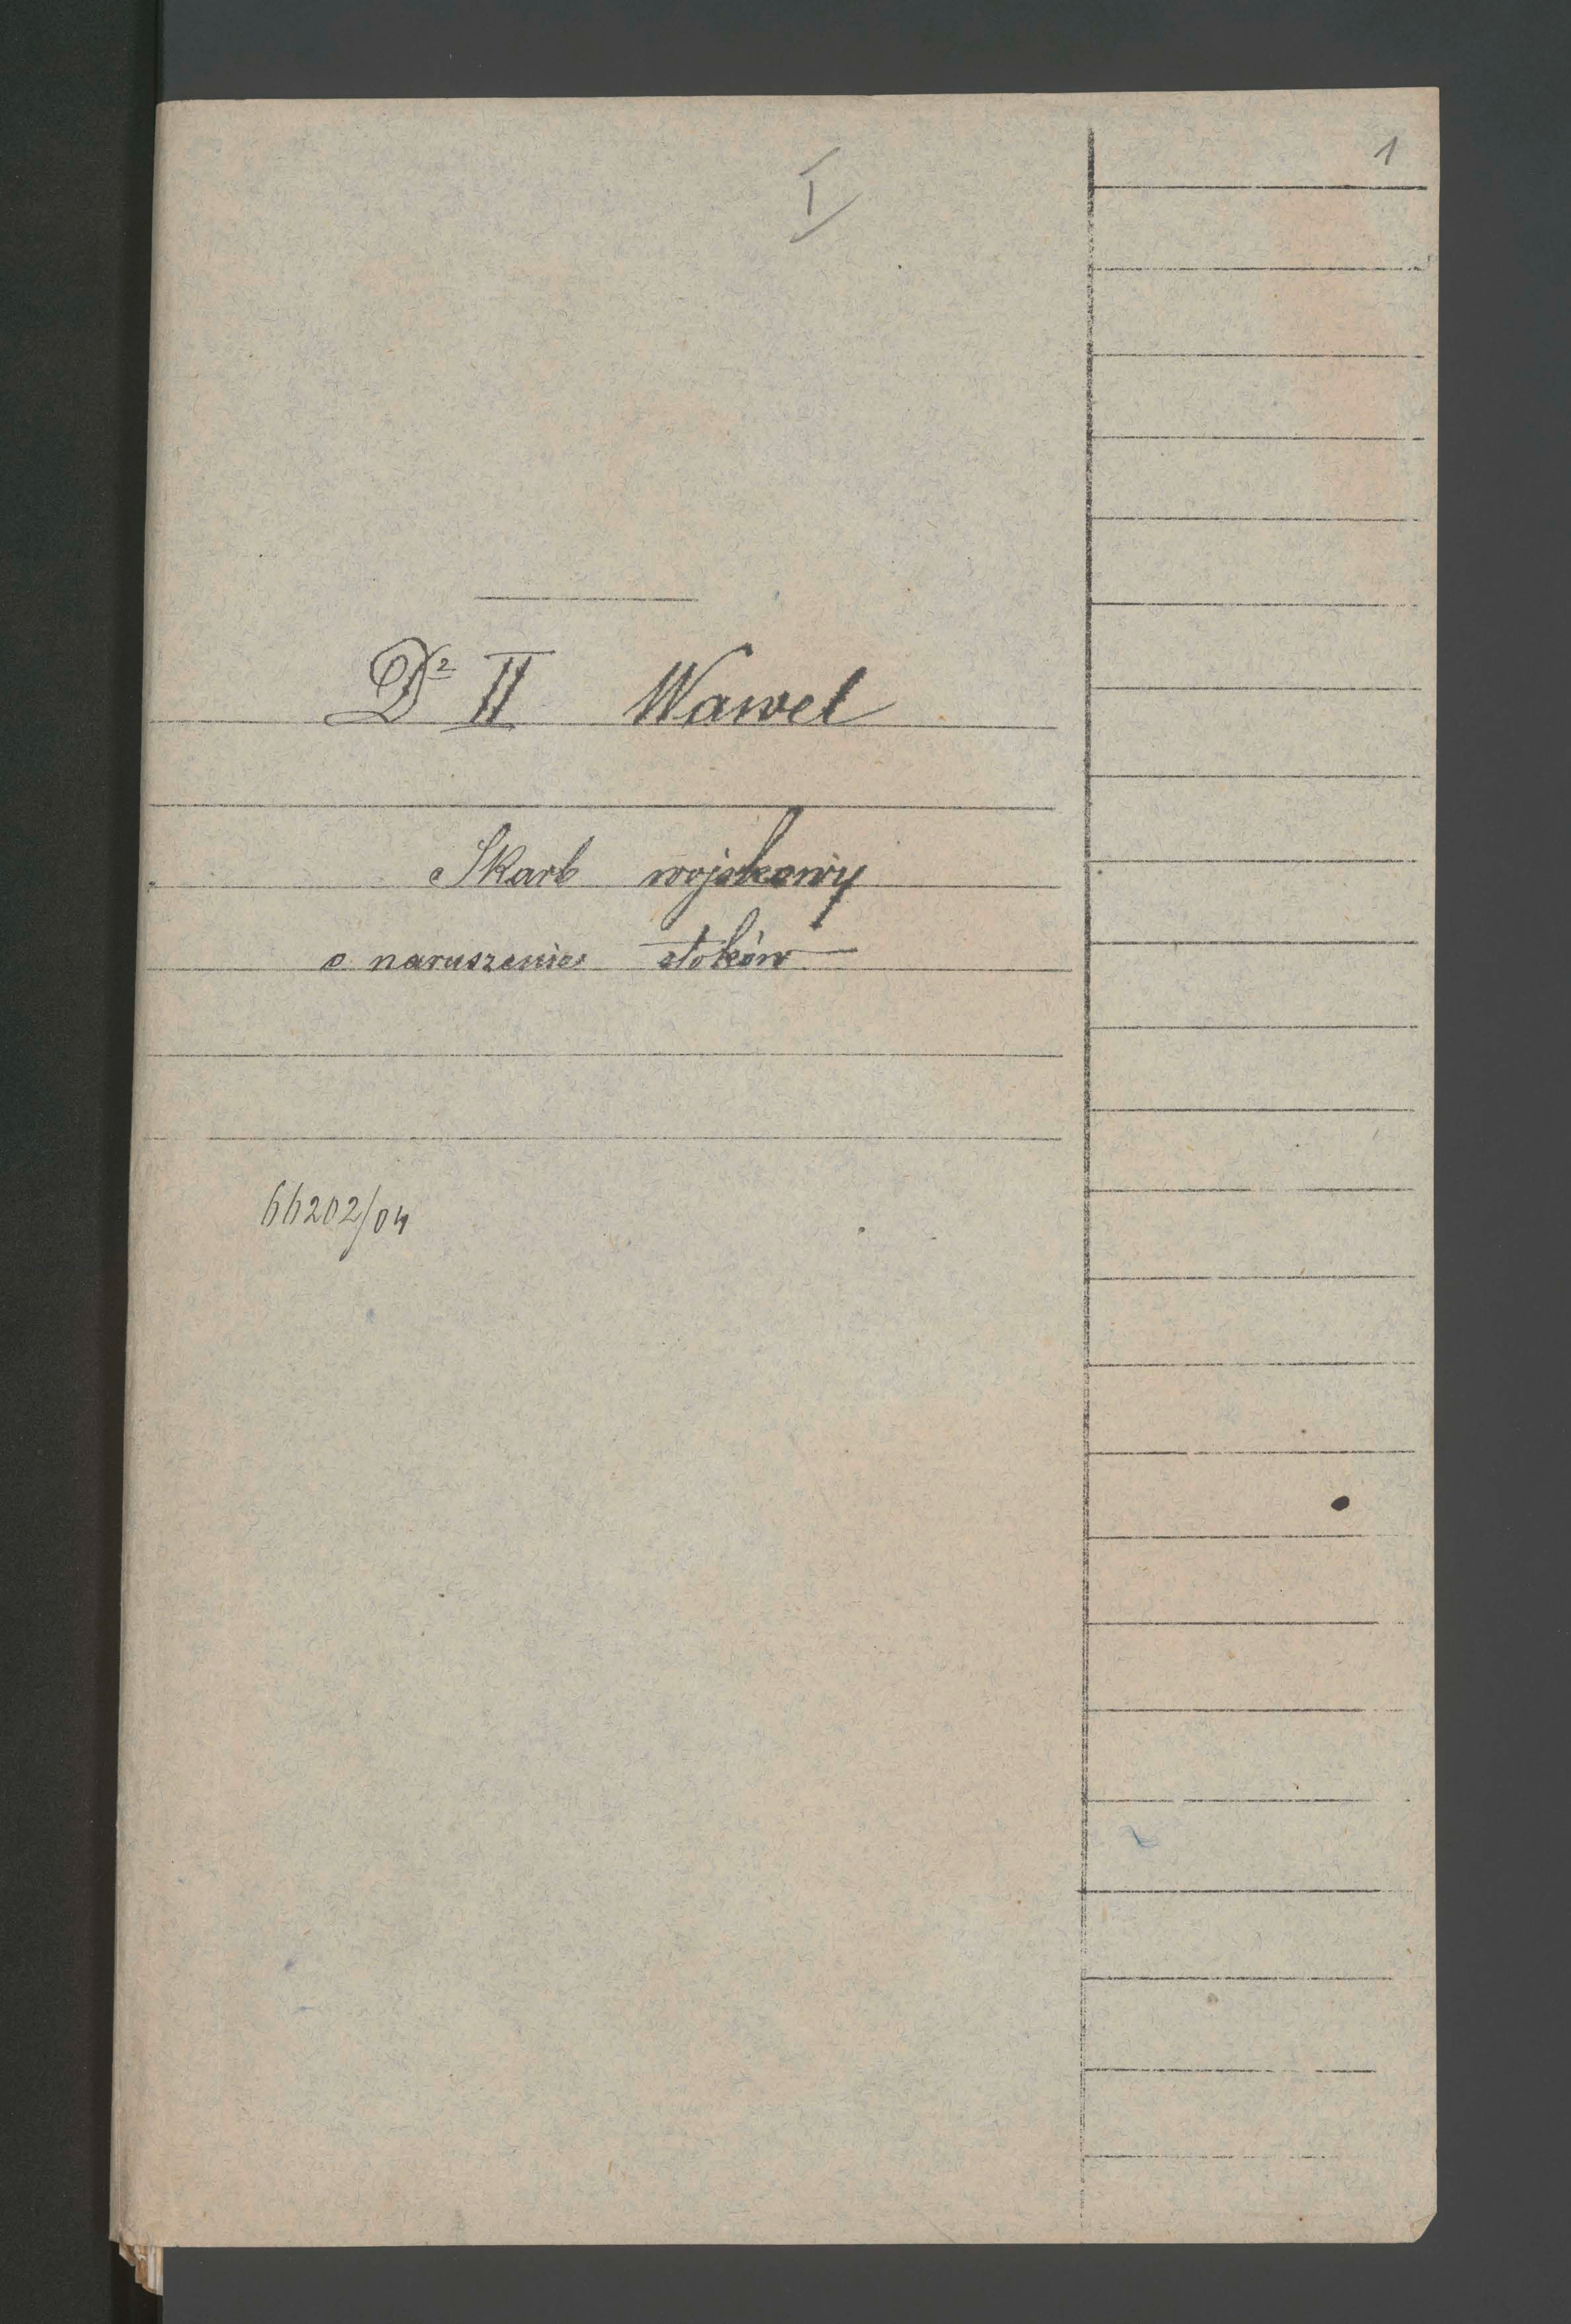 1
I
D² II Wawel
Skarb wojskowy
o naruszenie stoków
66202/04